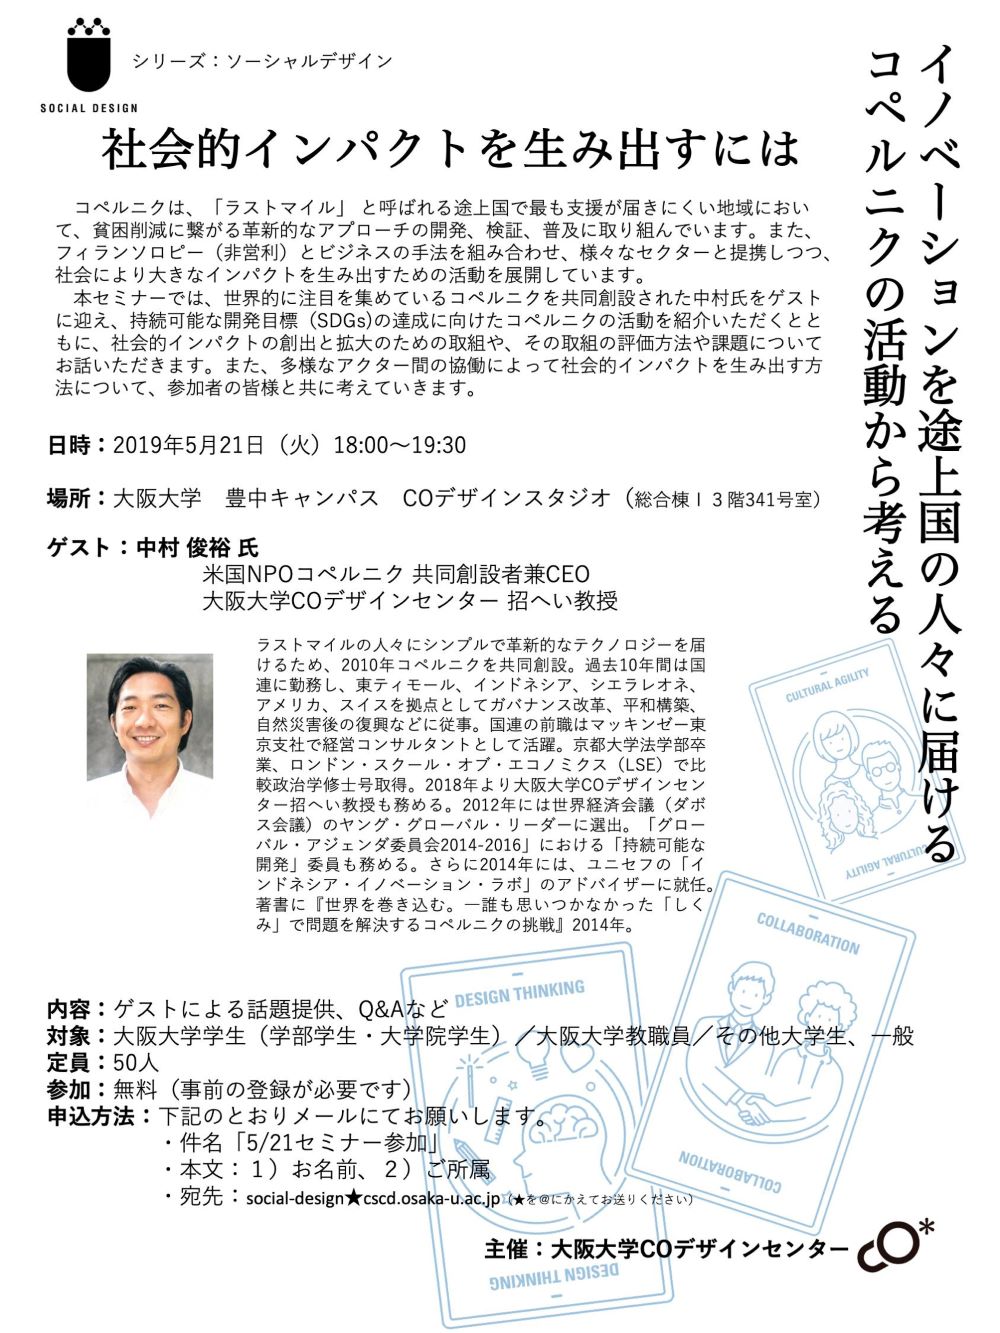 シリーズ：ソーシャルデザイン
SOCIAL DESIGN
社会的インパクトを生み出すには
イノベーションを途上国の人々に届ける
コペルニクの活動から考える
コペルニクは、「ラストマイル」 と呼ばれる途上国で最も支援が届きにくい地域におい
て、貧困削減に繋がる革新的なアプローチの開発、検証、普及に取り組んでいます。また、
フィランソロピー（非営利）とビジネスの手法を組み合わせ、様々なセクターと提携しつつ、
社会により大きなインパクトを生み出すための活動を展開しています。
本セミナーでは、世界的に注目を集めているコペルニクを共同創設された中村氏をゲスト
に迎え、持続可能な開発目標（SDGs)の達成に向けたコペルニクの活動を紹介いただくとと
もに、社会的インパクトの創出と拡大のための取組や、その取組の評価方法や課題について
お話いただきます。また、多様なアクター間の協働によって社会的インパクトを生み出す方
法について、参加者の皆様と共に考えていきます。
日時：2019年5月21日（火）18:00〜19:30
場所：大阪大学　豊中キャンパス　COデザインスタジオ（総合棟Ⅰ３階341号室）
ゲスト：中村 俊裕 氏
米国NPOコペルニク 共同創設者兼CEO
大阪大学COデザインセンター 招へい教授
ラストマイルの人々にシンプルで革新的なテクノロジーを届
けるため、2010年コペルニクを共同創設。過去10年間は国
連に勤務し、東ティモール、インドネシア、シエラレオネ、
アメリカ、スイスを拠点としてガバナンス改革、平和構築、
自然災害後の復興などに従事。国連の前職はマッキンゼー東
京支社で経営コンサルタントとして活躍。京都大学法学部卒
業、ロンドン・スクール・オブ・エコノミクス（LSE）で比
較政治学修士号取得。2018年より大阪大学COデザインセン
ター招へい教授も務める。2012年には世界経済会議（ダボ
ス会議）のヤング・グローバル・リーダーに選出。「グロー
バル・アジェンダ委員会2014-2016」における「持続可能な
開発」委員も務める。さらに2014年には、ユニセフの「イ
ンドネシア・イノベーション・ラボ」のアドバイザーに就任。
著書に『世界を巻き込む。―誰も思いつかなかった「しく
み」で問題を解決するコペルニクの挑戦』2014年。
CULTURAL AGILITY
CULTURAL AGILITY
COLLABORATION
COLLABORATION
DESIGN THINKING
DESIGN THINKING
内容：ゲストによる話題提供、Q&Aなど
対象：大阪大学学生（学部学生・大学院学生）／大阪大学教職員／その他大学生、一般
定員：50人
参加：無料（事前の登録が必要です）
申込方法：下記のとおりメールにてお願いします。
・件名「5/21セミナー参加」
・本文：１）お名前、２）ご所属
・宛先：social-design★cscd.osaka-u.ac.jp（★を@にかえてお送りください）
主催：大阪大学COデザインセンター